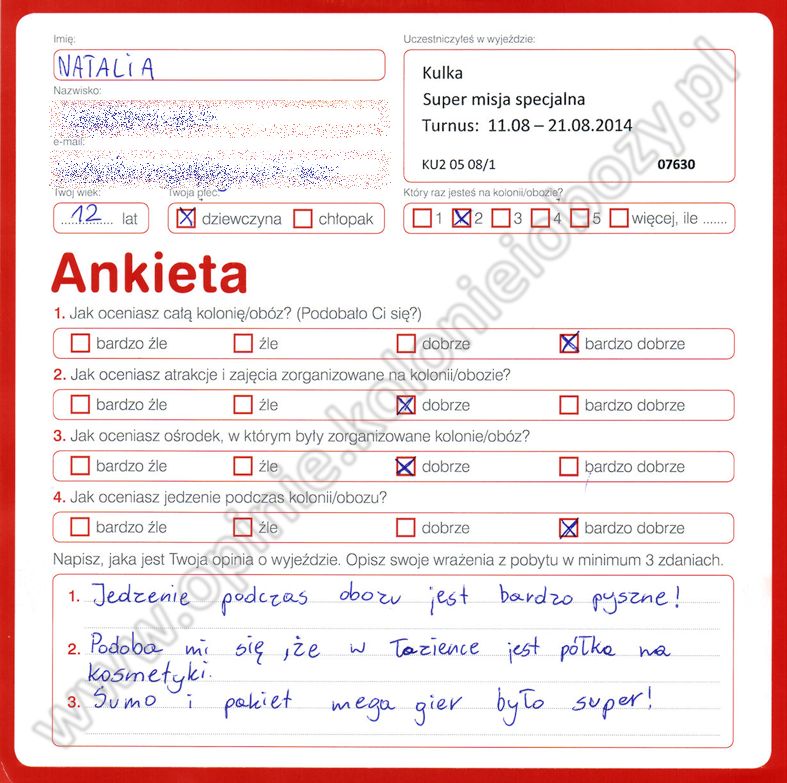 Imię:
NATALIA
Nazwisko:
e-mail:
Uczestniczyłeś w wyjeździe:
Kulka
Super misja specjalna
Turnus: 11.08 – 21.08.2014
KU2 05 08/1 07630
Twój wiek:
12 lat
Twoja płeć:
dziewczyna chłopak
Który raz jesteś na kolonii/obozie?
1 2 3 4 5 więcej, ile .......
Ankieta
1. Jak oceniasz całą kolonię/obóz? (Podobało Ci się?)
bardzo źle źle dobrze bardzo dobrze
2. Jak oceniasz atrakcje i zajęcia zorganizowane na kolonii/obozie?
bardzo źle źle dobrze bardzo dobrze
3. Jak oceniasz ośrodek, w którym były zorganizowane kolonie/obóz?
bardzo źle źle dobrze bardzo dobrze
4. Jak oceniasz jedzenie podczas kolonii/obozu?
bardzo źle źle dobrze bardzo dobrze
Napisz, jaka jest Twoja opinia o wyjeździe. Opisz swoje wrażenia z pobytu w minimum 3 zdaniach.
1. Jedzenie podczas obozu jest bardzo pyszne!
2. Podoba mi się, że w łazience jest półka na
kosmetyki.
3. Sumo i pakiet mega gier było super!
www.opinie.kolonieiobozy.pl